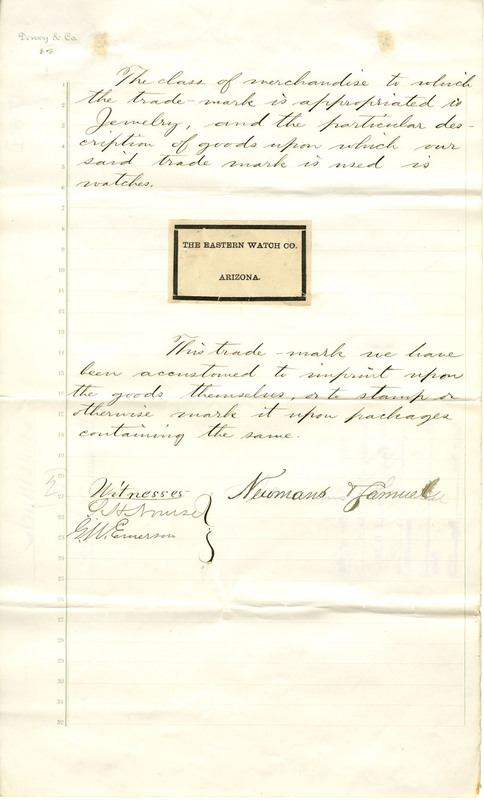 Dewey & Co.
S.F.
The class of merchandise to which
the trade-mark is appropriated is
Jewelry, and the particular des-
cription of goods upon which our
said trade mark is used is
watches.
THE EASTERN WATCH CO.
ARIZONA.
This trade-mark we have
been accustomed to imprint upon
the goods themselves, or to stamp or
otherwise mark it upon packages
containing the same.
Witnesses
Newman &
G.W. Emerson
1
2
3
4
5
6
7
8
9
10
11
12
13
14
15
16
17
18
19
20
21
22
23
24
25
26
27
28
29
30
31
32